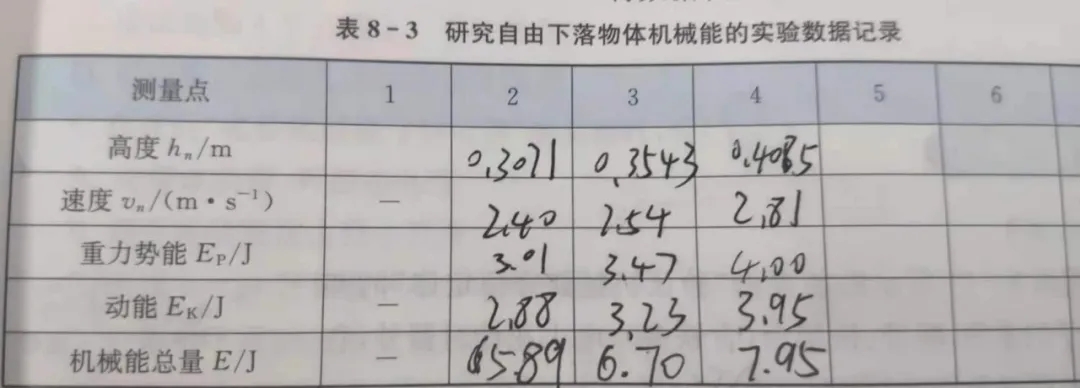 表 8-3 研究自由下落物体机械能的实验数据记录
测量点 1 2 3 4 5 6
高度 hₙ/m 0.3071 0.3543 0.4085
速度 vₙ/(m·s⁻¹) — 2.40 2.54 2.81
重力势能 Eₚ/J 3.01 3.47 4.00
动能 Eₖ/J — 2.88 3.23 3.95
机械能总量 E/J — 5.89 6.70 7.95